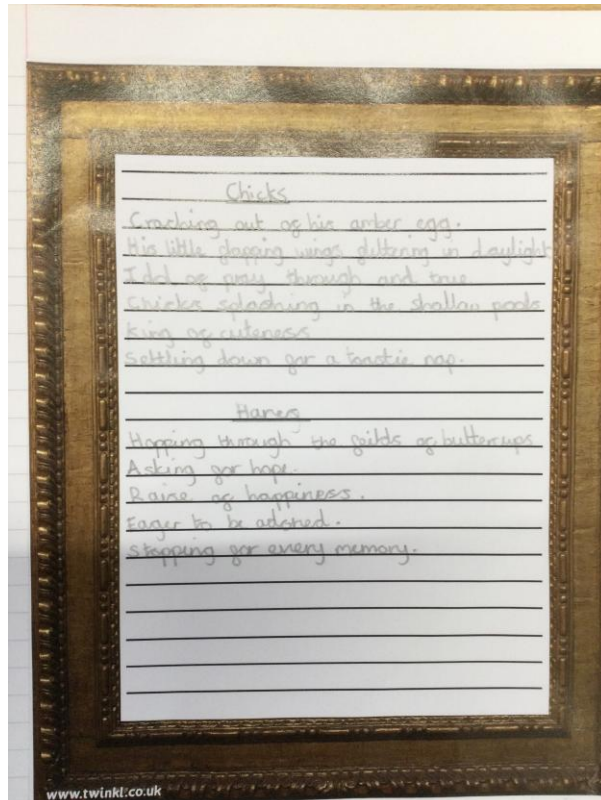 Chicks
Craching out of his amber egg.
His little flapping wings glittering in daylight
Idol of pray through and true
Chicks splashing in the shallow pools
King of cuteness
Settling down for a toastie nap.
Hares
Hopping through the feilds of buttercups
Asking for hope.
Raise of happiness.
Eager to be adored.
Stopping for every memory.
www.twinkl.co.uk